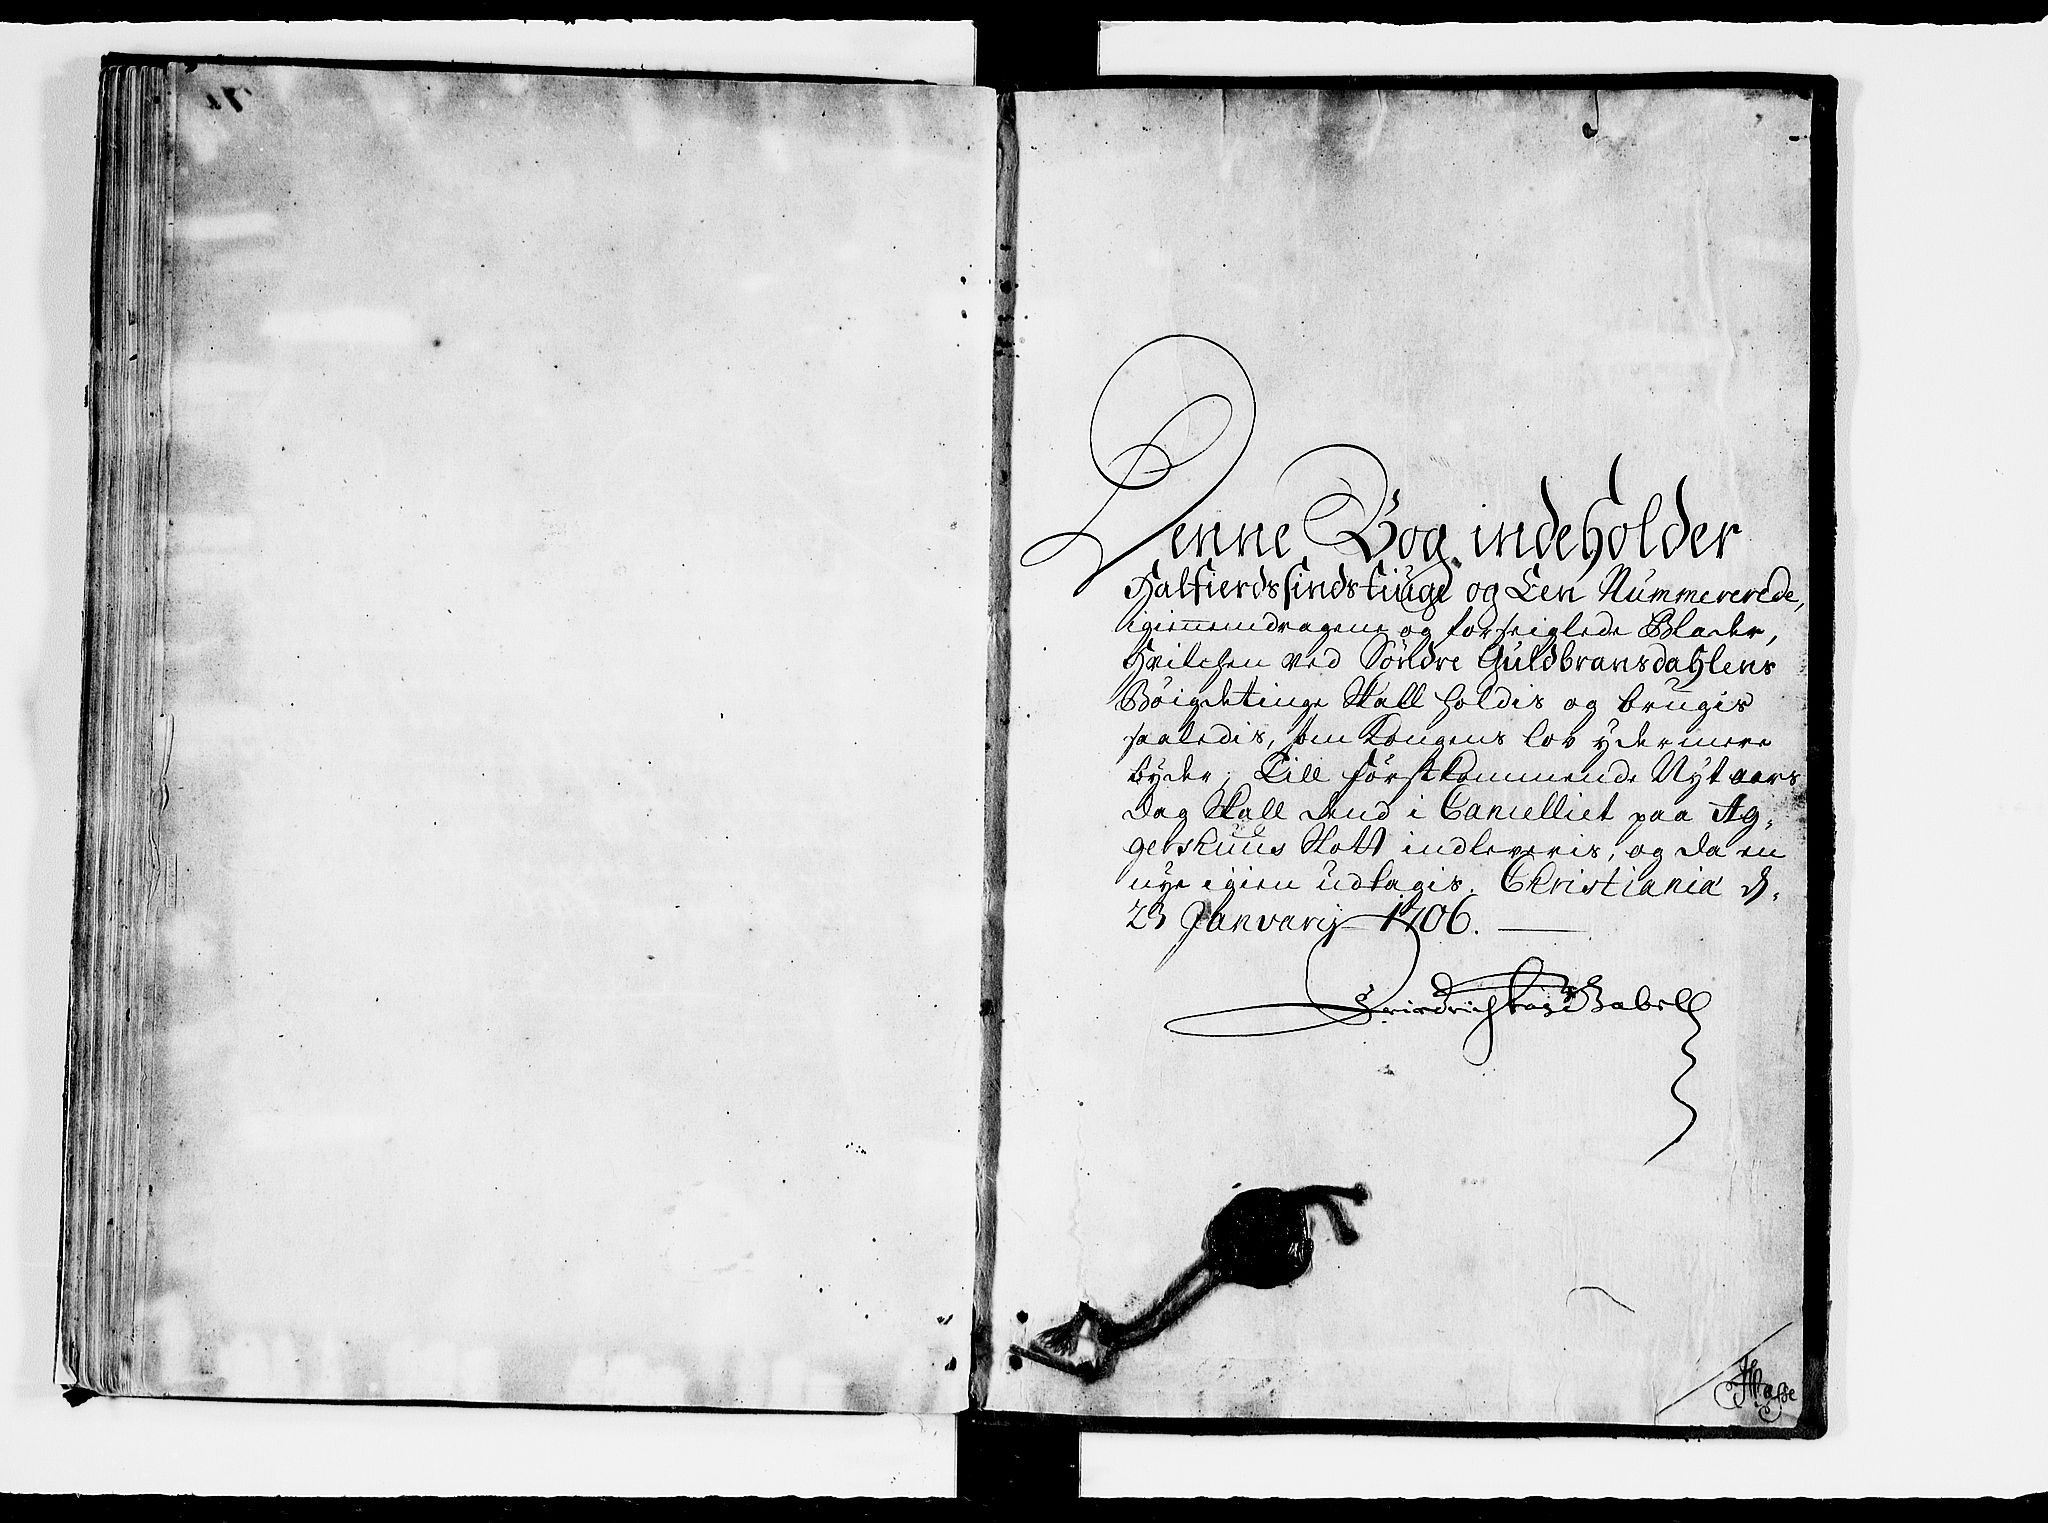 71
Denne Bog indeholder
Halfierdsindstiuge og Een Nummererede,
igiennemdragene og forseiglede Blader,
Hvilchen ved Söndre Guldbransdahlens
Böigdetinge Skall holdis og brugis
saaledis, som Kongens lov ydermere
byder; Till förstkommende Nyt aars
Dag Skall dend i Cancelliet paa Ag-
gershuus Slott indleveris, og da en
nye igien udtagis. Christiania d.
23 Januarij 1706.
Friedrich Gabell